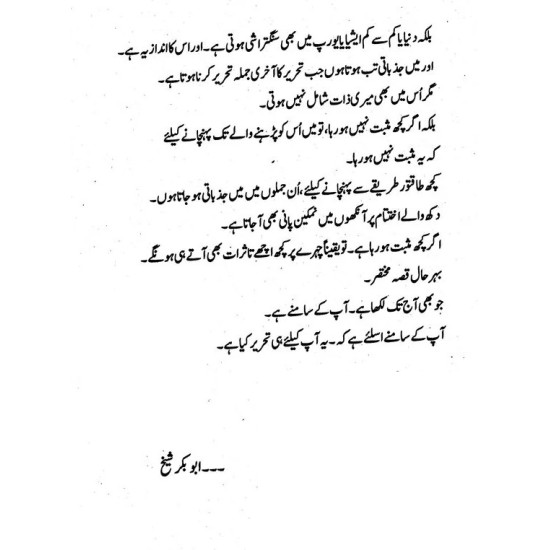 بلکہ دنیا یا کم سے کم ایشیا یا یورپ میں بھی سنگتراشی ہوتی ہے۔ اور اس کا انداز یہ ہے۔
اور میں جذباتی تب ہوتا ہوں جب تحریر کا آخری جملہ تحریر کرنا ہوتا ہے۔
مگر اُس میں بھی میری ذات شامل نہیں ہوتی۔
بلکہ اگر کچھ مثبت نہیں ہو رہا، تو میں اُس کو پڑہنے والے تک پہنچانے کیلئے
کہ یہ مثبت نہیں ہو رہا۔
کچھ طاقتور طریقے سے پہنچانے کیلئے، اُن جملوں میں میں جذباتی ہو جاتا ہوں۔
دکھ والے اختتام پر آنکھوں میں نمکین پانی بھی آ جاتا ہے۔
اگر کچھ مثبت ہو رہا ہے۔ تو یقیناً چہرے پر کچھ اچھے تاثرات بھی آتے ہی ہونگے۔
بہر حال قصہ مختصر۔
جو بھی آج تک لکھا ہے۔ آپ کے سامنے ہے۔
آپ کے سامنے اسلئے ہے کہ۔ یہ آپ کیلئے ہی تحریر کیا ہے۔
۔۔۔ابوبکر شیخ